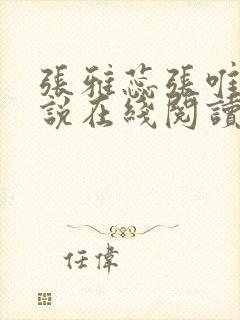 張雅蕊張唯
說在綫閱讀
任偉